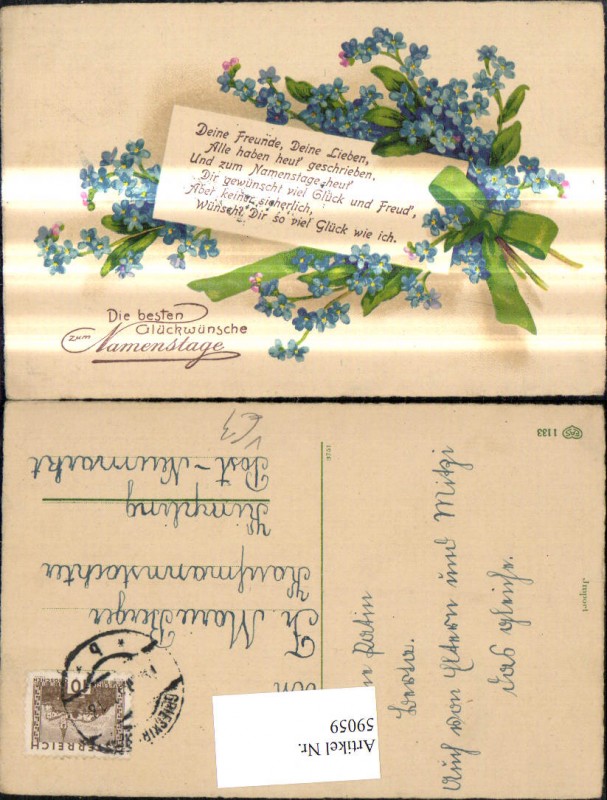 Deine Freunde, Deine Lieben,
Alle haben heut' geschrieben,
Und zum Namenstage heut'
Dir gewünscht viel Glück und Freud',
Aber keiner, sicherlich,
Wünscht Dir so viel Glück wie ich.
Die besten
Glückwünsche
zum
Namenstage
1133
Import
Auch von Eltern und Mitzi
das gleiche.
Patin
Berta.
Frl. Marie Berger
Kaufmannstochter
Kimpling
Post-Neumarkt
ÖSTERREICH
10
GRIESKIR
* b *
Artikel Nr.
59059